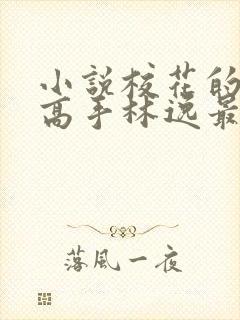 小説校花的
高手林逸最
落風一夜